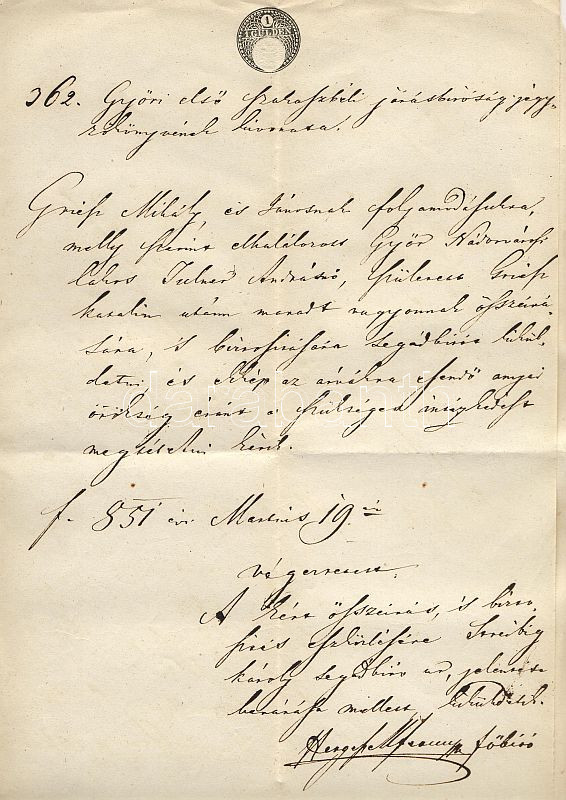 1
1 GULDEN
362. Győri első szakaszbeli járásbíróság jegy-
zőkönyvének kivonata.
Griesz Mihály és Jánosnak folyamodásukra,
melly szerint elhalálozott Győr Nádorvárosi
lakos Andrásné, született Griesz
Katalin utánn maradt vagyonnak összeirá-
sára, és birosirására segédbiró kikül-
detni, és ekkép az árvákra esendő anyai
örökség eránt a szükséges intézkedést
megtétetni kérik.
f. 851 évi Martius 19én
Végeztetett.
A kért összeirás, és biro-
sirás eszközlésére Streibig
Károly segédbiró úr, jelentése
beváráSa mellett, kiküldetik.
főbiró